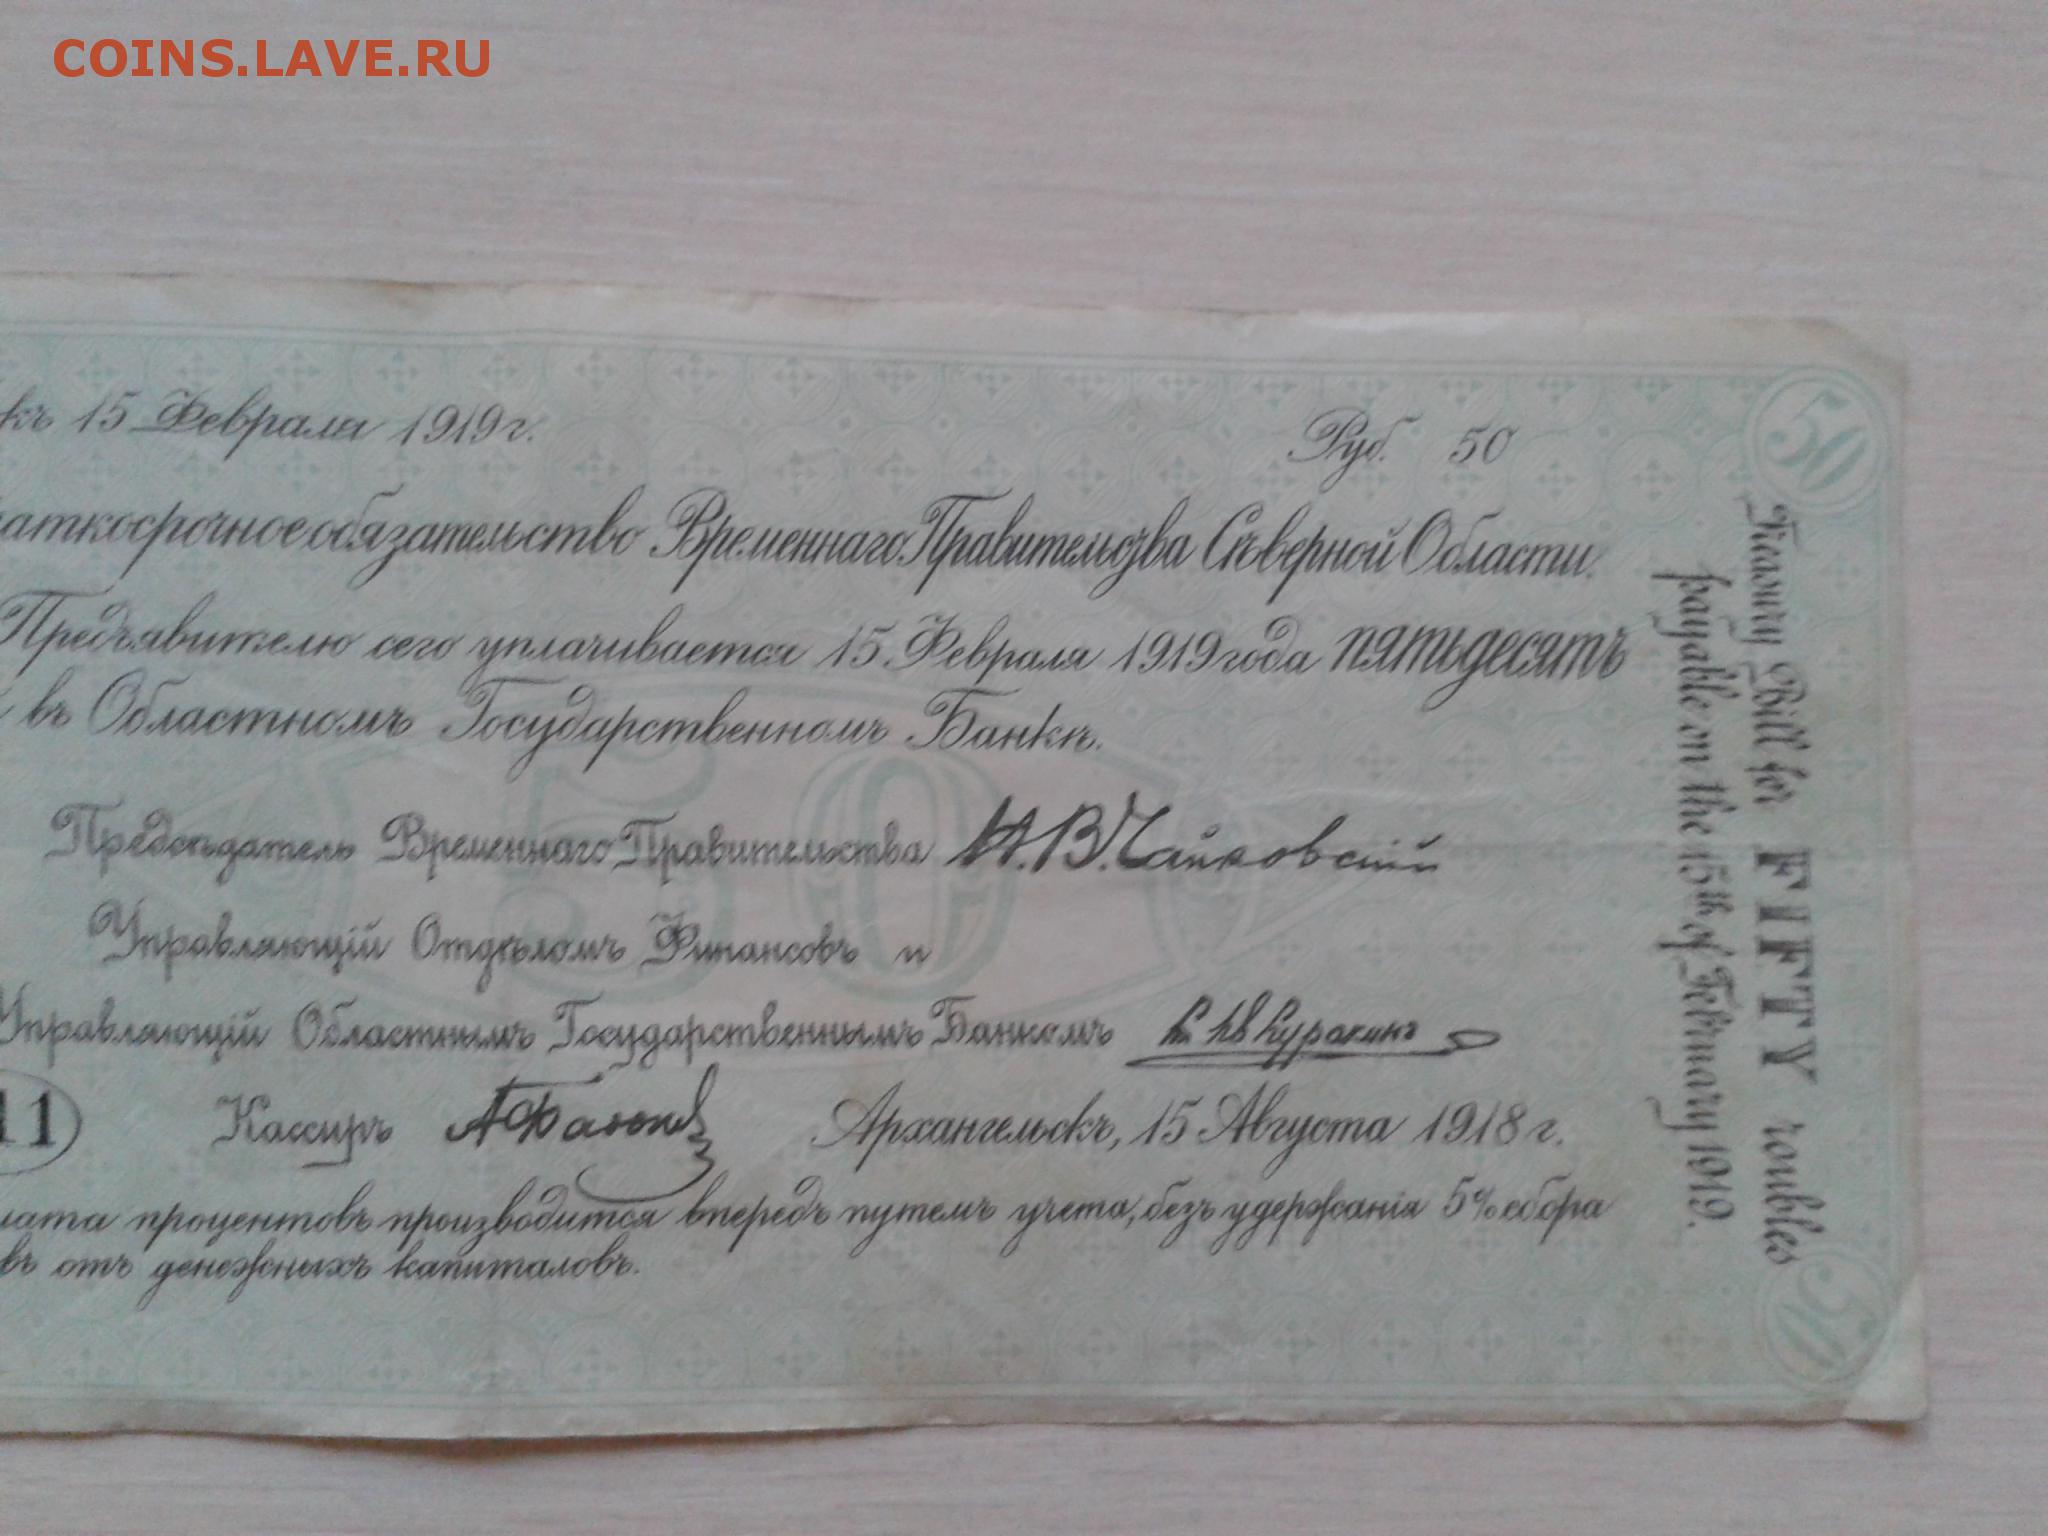 COINS.LAVE.RU
къ 15 Февраля 1919 г.
Руб. 50
50
аткосрочное обязательство Временнаго Правительства Сѣверной Области.
Предъявителю сего уплачивается 15 Февраля 1919 года пятьдесятъ
въ Областномъ Государственномъ Банкѣ.
50
Предсѣдатель Временнаго Правительства Н.В. Чайковскій
Управляющій Отдѣломъ Финансовъ и
Управляющій Областнымъ Государственнымъ Банкомъ Куракинъ
11
Кассиръ
Архангельскъ, 15 Августа 1918 г.
лата процентовъ производится впередъ путемъ учета, безъ удержанія 5% сбора
въ отъ денежныхъ капиталовъ.
Treasury Bill for FIFTY roubles
payable on the 15th of February 1919.
50